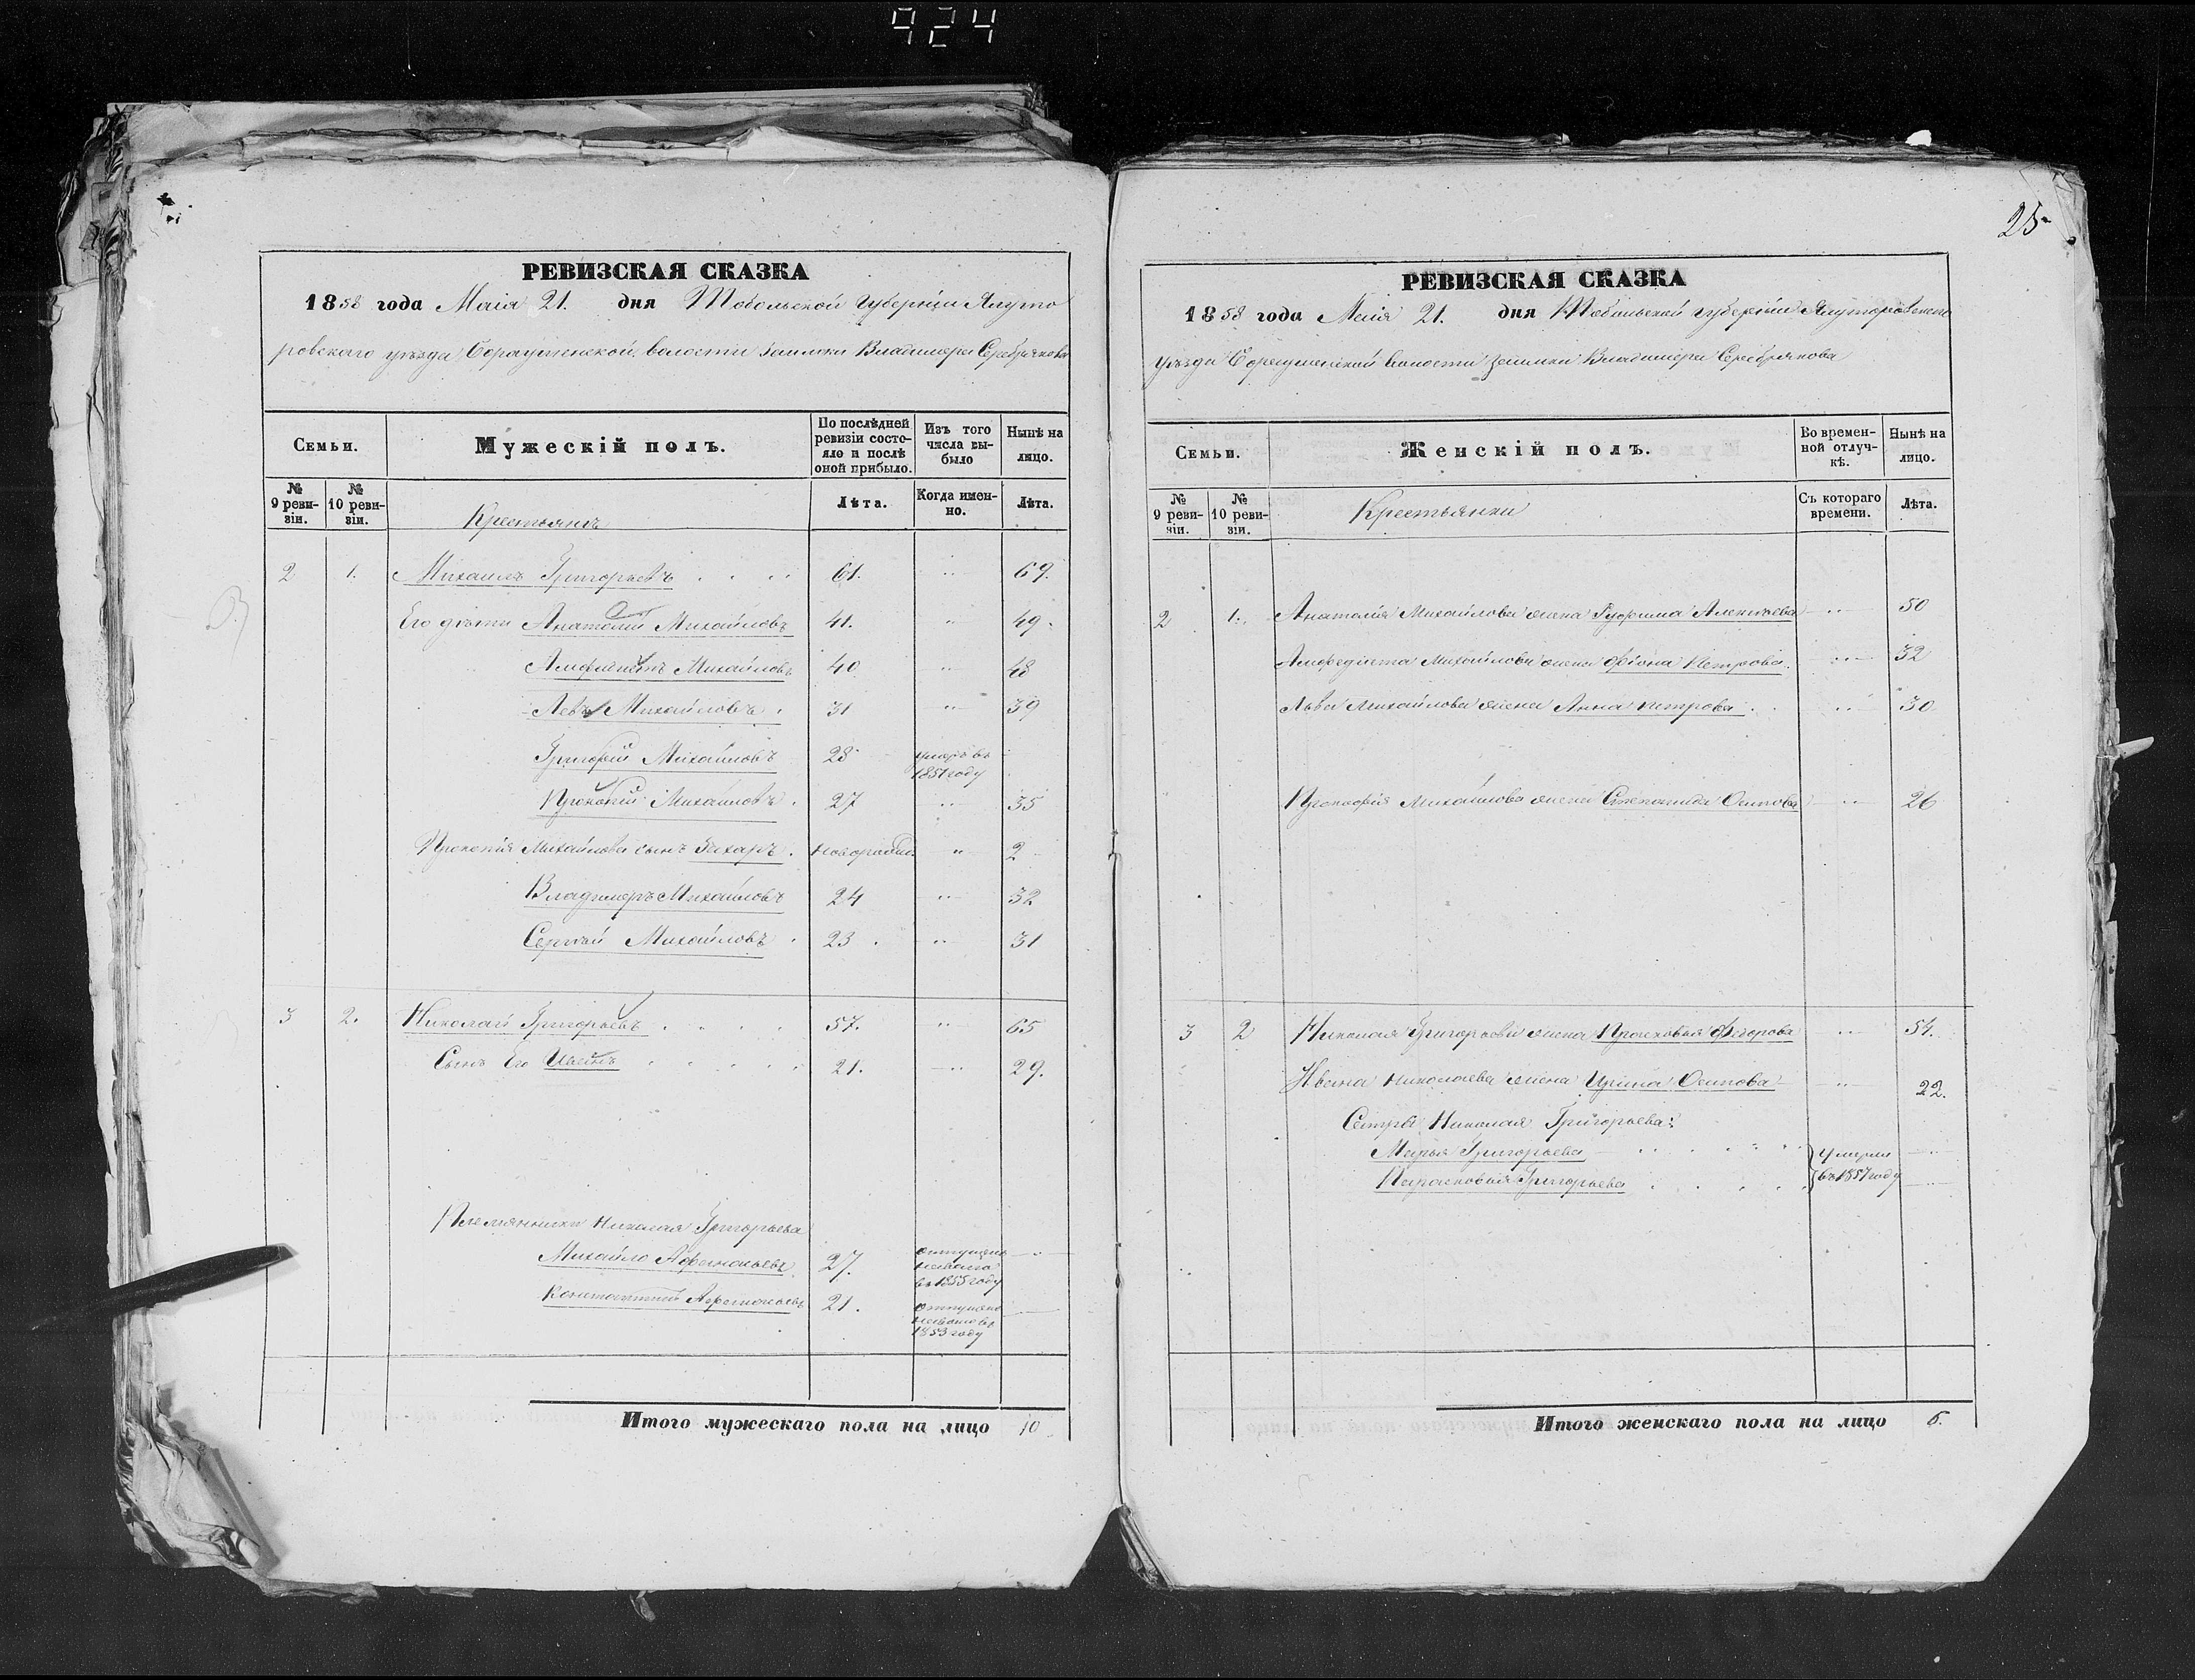 924
РЕВИЗСКАЯ СКАЗКА
1858 года Маія 21. дня Тобольской губерніи Ялуто
ровскаго уѣзда волости заимки Владимера Серебрякова
Семьи.
Мужескій полъ.
По послѣдней ревизіи состояло и послѣ оной прибыло.
Изъ того числа выбыло
Нынѣ на лицо.
№ 9 ревизіи.
№ 10 ревизіи.
Крестьянъ
Лѣта.
Когда именно.
Лѣта.
2 1. Михаилъ Григорьевъ . . . . 61. " 69.
Его дѣти Анатолій Михайловъ 41. " 49.
Михайловъ 40. " 48
Левъ Михайловъ . 31 " 39
Григорій Михайловъ 28 умеръ въ 1851 году
Прокопій Михайловъ . 27 " 35
Прокопія Михайлова сынъ Захаръ . новорожд. " 2
Владимеръ Михайловъ 24 " 32
Сергѣй Михайловъ . 23 . " 31
3 2. Николай Григорьевъ . . . . 57. " 65
Сынъ Его Иванъ . . . . . 21. " 29.
Племянники Николая Григорьева
Михайло Афанасьевъ 27. въ 1855 году "
Константинъ Афанасьевъ 21. 1853 году
Итого мужескаго пола на лицо 10
25
РЕВИЗСКАЯ СКАЗКА
1858 года Маія 21. дня Тобольской губерніи Ялуторовскаго
уѣзда волости заимки Владимера Серебрякова
Семьи.
Женскій полъ.
Во временной отлучкѣ.
Нынѣ на лицо.
№ 9 ревизіи.
№ 10 ревизіи.
Крестьянки
Съ котораго времени.
Лѣта.
2 1. Анатолія Михайлова жена Алексѣева " 50
Михайлова жена Петрова. " 32
Льва Михайлова жена Анна Петрова . . " 30
Прокопія Михайлова жена Степанида Осипова " 26
3 2 Николая Григорьева жена Прасковья Федорова " 54.
Ивана Николаева жена Ирина Осипова " 22.
Сестры Николая Григорьева:
Марья Григорьева . . . . } умерли
Парасковья Григорьева . . . . въ 1857 году
Итого женскаго пола на лицо 6.